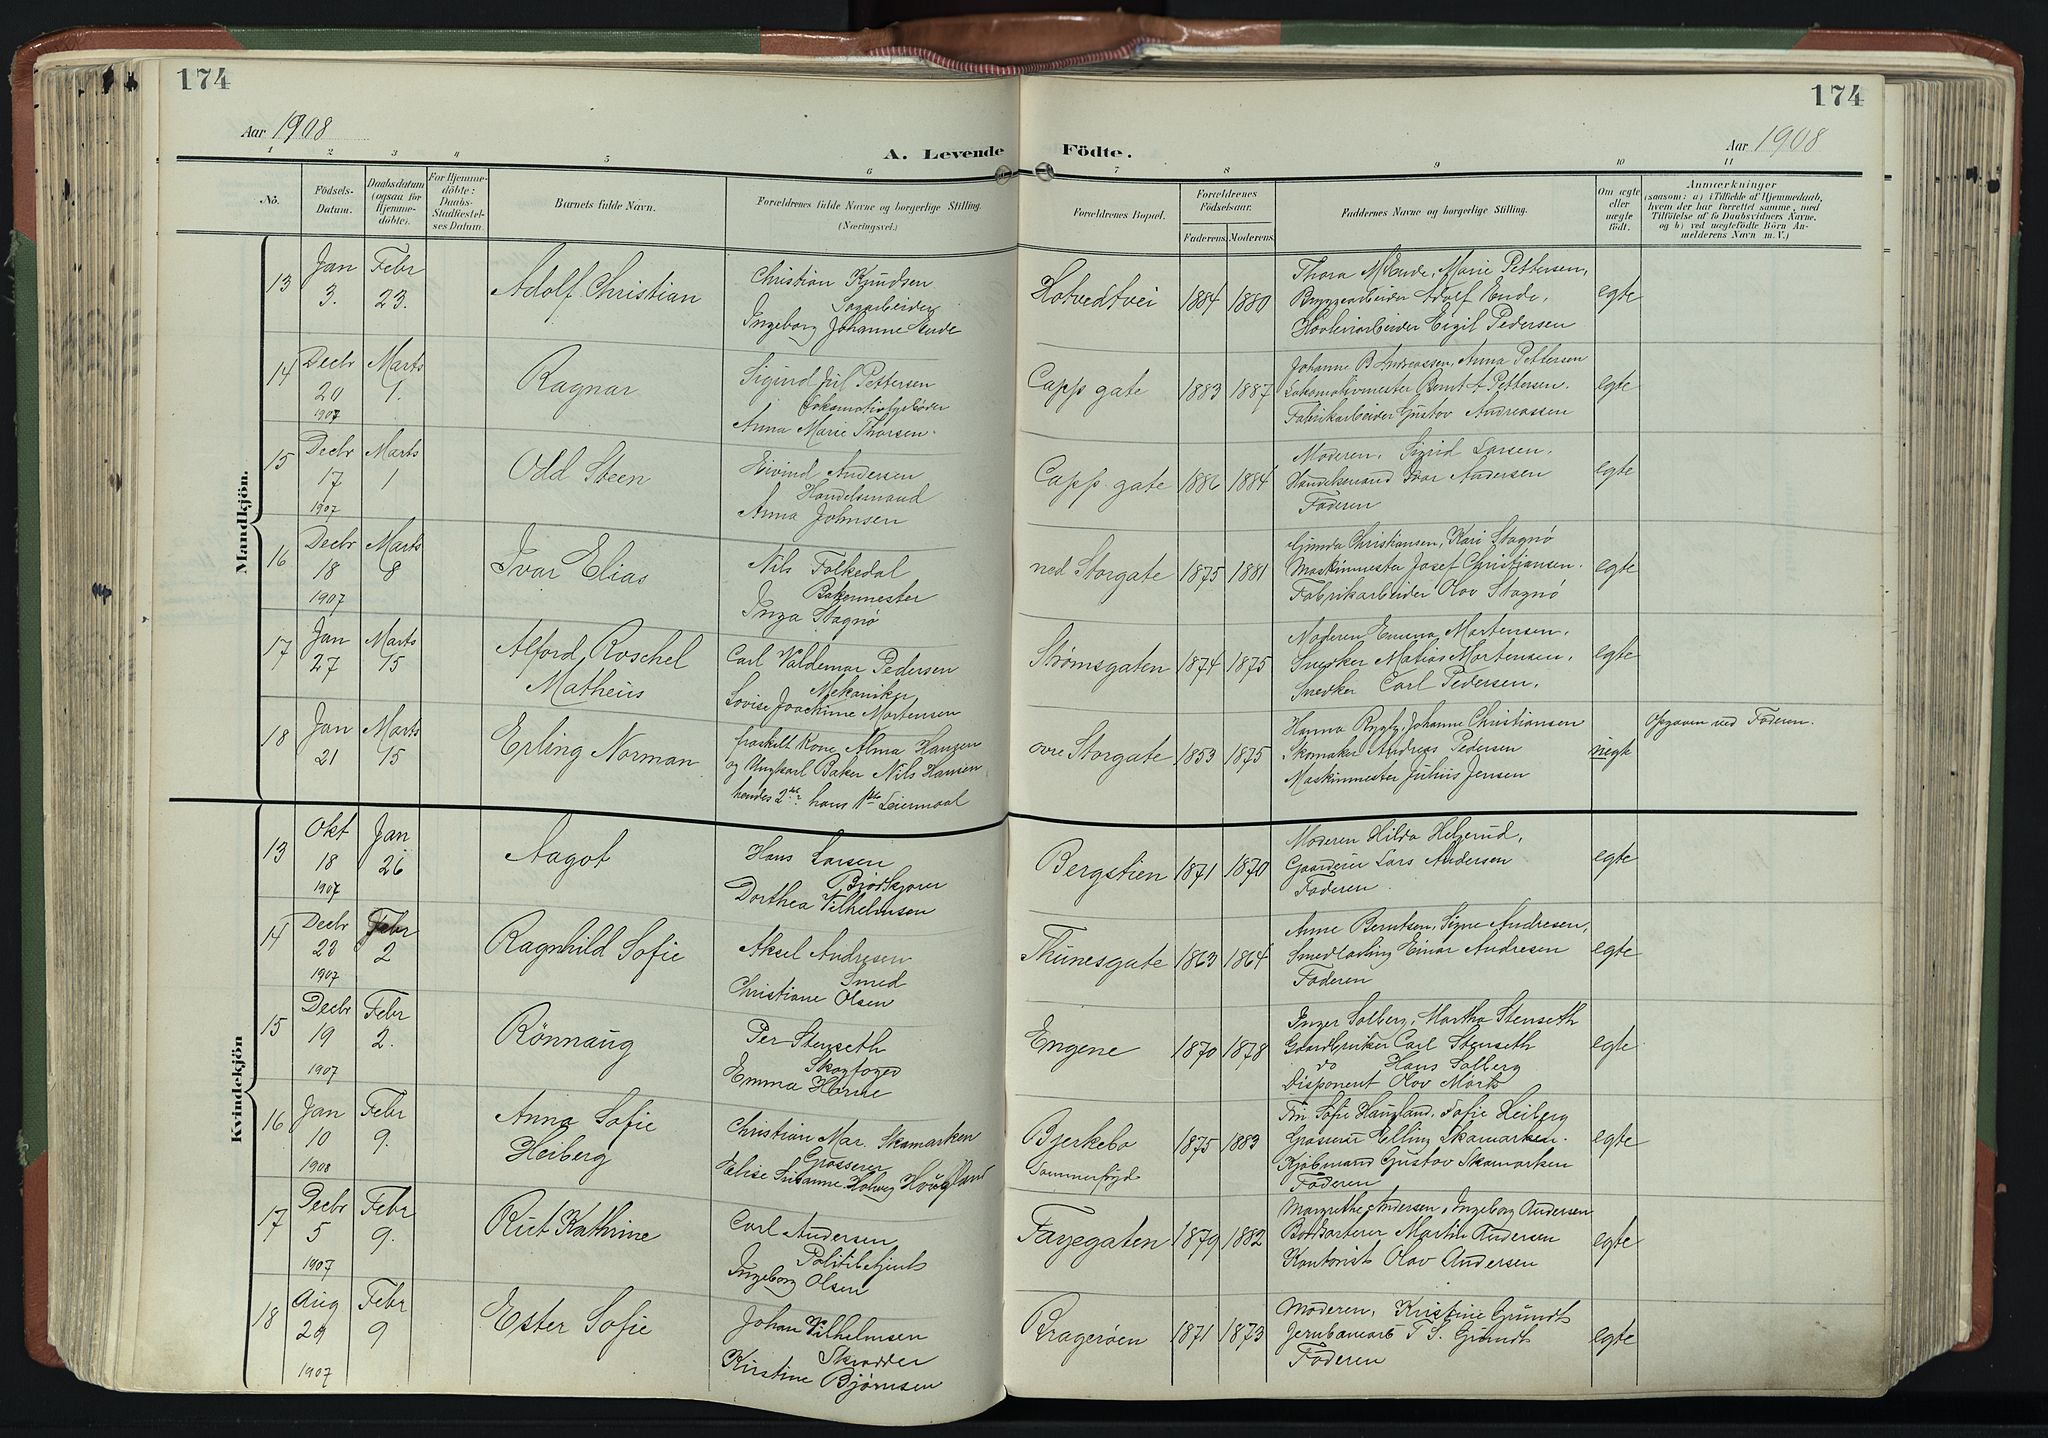 174
174
Aar 1908
A. Levende Födte.
Aar 1908
1 2 3 4 5 6 7 8 9 10 11
No.
Födsels-Datum.
Daabsdatum (ogsaa for Hjemme-döbte).
For Hjemme-döbte: Daabs-Stadfæstel-ses Datum.
Barnets fulde Navn.
Forældrenes fulde Navne og borgerlige Stilling.
(Næringsvei.)
Forældrenes Bopæl.
Forældrenes Födselsaar.
Faderens. Moderens.
Faddernes Navne og borgerlige Stilling.
Om ægte eller uægte födt.
Anmærkninger
(saasom: a) i Tilfælde af Hjemmedaab,
hvem der har forrettet samme, med
Tilföielse af to Daabsvidners Navne,
og b) ved uægtefödte Börn An-
melderens Navn m. V.)
Mandkjön.
13
Jan 3.
Febr 23.
Adolf Christian
Christian Knudsen
Sagarbeider
Ingeborg Johanne Ende
Hotvedtvei
1884
1880
Thora M Ende, Marie Pettersen,
Bryggearbeider Adolf Ende,
Høvleriarbeider Eigil Pedersen
egte
14
Decbr 20 1907
Marts 1.
Ragnar
Sigurd Jul Pettersen
Lokomotivfyrbøder
Anna Marie Thorsen.
Capp gate
1883
1887
Johanne B Andreassen, Anna Pettersen
Lokomotivmester Bernt A Pettersen.
Fabrikarbeider Gustav Andreassen
egte
15
Decbr 17 1907
Marts 1
Odd Steen
Eivind Andersen
Handelsmand
Anna Johnsen
Capp. gate
1886
1884
Moderen, Sigrid Larsen,
Handelsmand Ivar Andersen
Faderen
egte
16
Decbr 18 1907
Marts 8
Ivar Elias
Nils Folkedal
Bakermester
Inga Stagnø
ned Storgate
1875
1881
Gunda Christiansen, Kari Stagnø
Maskinmester Josef Christiansen.
Fabrikarbeider Olav Stagnø
egte
17
Jan 27
Marts 15
Alford Roschel
Matheus
Carl Valdemar Pedersen
Mekaniker
Lovise Joachime Mortensen
Strømsgaten
1874
1875
Moderen Emma Mortensen,
Snedker Matias Mortensen,
Snedker Carl Pedersen,
egte
18
Jan 21
Marts 15
Erling Norman
fraskilt Kone Alma Hansen
og Ungkarl Baker Nils Hansen
hendes 2det hans 1ste Leiermaal
øvre Storgate
1853
1875
Hanna Rygh, Johanne Christiansen
Skomaker Andreas Pedersen
Maskinmester Julius Jensen
uegte
Opgaven ved Faderen.
Kvindekjön
13
Okt 18 1907
Jan 26
Aagot
Hans Larsen
Brødkjører
Dorthea Vilhelmsen
Bergstien
1871
1870
Moderen Hilda Helgerud,
Gaardeier Lars Andersen
Faderen
egte
14
Decbr 20 1907
Febr 2
Ragnhild Sofie
Aksel Andresen
Smed
Christiane Olsen
Thunesgate
1863
1864
Anne Berntsen, Signe Andresen,
Smedlærling Einar Andresen
Faderen
egte
15
Decbr 19 1907
Febr 2.
Rønnaug
Per Stenseth
Skogfoged
Emma Horne
Engene
1870
1878
Inger Solberg, Martha Stenseth
Gaardbruker Carl Stenseth
do Hans Solberg
Disponent Olav Mørk
egte
16
Jan 10 1908
Febr 9.
Anna Sofie
Heiberg
Christian Mar. Skamarken
Grosserer
Elise Susanne Holweg Haugland
Bjerkebo
Tommerfryd
1875
1883
Frn Sofie Haugland, Sofie Heiberg
Grosserer Elling Skamarken.
Kjøbmand Gustav Skamarken
Faderen
egte
17
Decbr 5 1907
Febr 9.
Rut Kathrine
Carl Andersen
Politibetjent
Ingeborg Olsen
Fayegaten
1879
1882
Margrethe Andersen, Ingeborg Andersen
Martin Andersen
Kontorist Olav Andersen
egte
18
Aug 29 1907
Febr 9
Ester Sofie
Johan Vilhelmsen
Skrædder
Kirstine Bjørnsen
Bragerøen
1871
1873
Moderen, Kristine Grundt
T S. Grundt
Faderen
egte